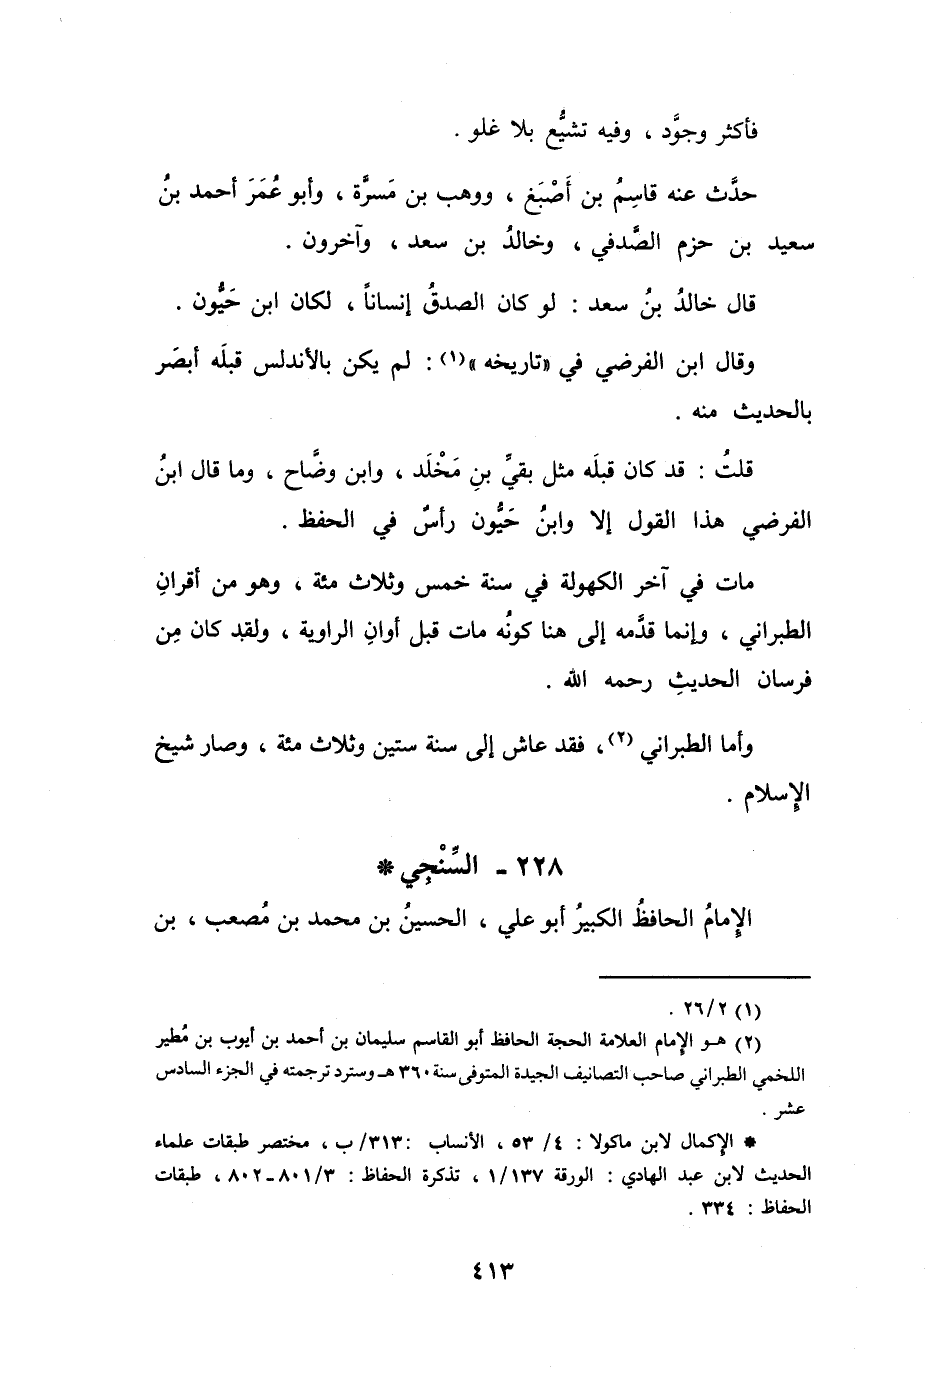 فأكثر وجوَّد ، وفيه تشيُّع بلا غلو .
حدَّث عنه قاسِمُ بن أَصْبَغ ، ووهب بن مَسرَّة ، وأبو عُمَرَ أحمد بنُ
سعيد بن حزم الصَّدفي ، وخالدُ بن سعد ، وآخرون .
قال خالدُ بنُ سعد : لو كان الصدقُ إنساناً ، لكان ابن حَيُّون .
وقال ابن الفرضي في «تاريخه»(١) : لم يكن بالأندلس قبلَه أبصَر
بالحديث منه .
قلتُ : قد كان قبلَه مثل بقيِّ بنِ مَخْلَد ، وابن وضَّاح ، وما قال ابنُ
الفرضي هذا القول إلا وابنُ حَيُّون رأسٌ في الحفظ .
مات في آخر الكهولة في سنة خمس وثلاث مئة ، وهو من أقرانِ
الطبراني ، وإنما قدَّمه إلى هنا كونُه مات قبل أوانِ الراوية ، ولقد كان مِن
فرسان الحديثِ رحمه الله .
وأما الطبراني (٢) ، فقد عاش إلى سنة ستين وثلاث مئة ، وصار شيخ
الإِسلام .
٢٢٨ - السِّنْجِي *
الإِمامُ الحافظُ الكبيرُ أبو علي ، الحسينُ بن محمد بن مُصعب ، بن
(١) ٢٦/٢ .
(٢) هـو الإِمام العلامة الحجة الحافظ أبو القاسم سليمان بن أحمد بن أيوب بن مُطير
اللخمي الطبراني صاحب التصانيف الجيدة المتوفى سنة ٣٦٠ هـ وسترد ترجمته في الجزء السادس
عشر .
* الإِكمال لابن ماكولا : ٤/ ٥٣ ، الأنساب :٣١٣/ ب ، مختصر طبقات علماء
الحديث لابن عبد الهادي : الورقة ١/١٣٧ ، تذكرة الحفاظ : ٨٠١/٣ـ٨٠٢ ، طبقات
الحفاظ : ٣٣٤ .
٤١٣